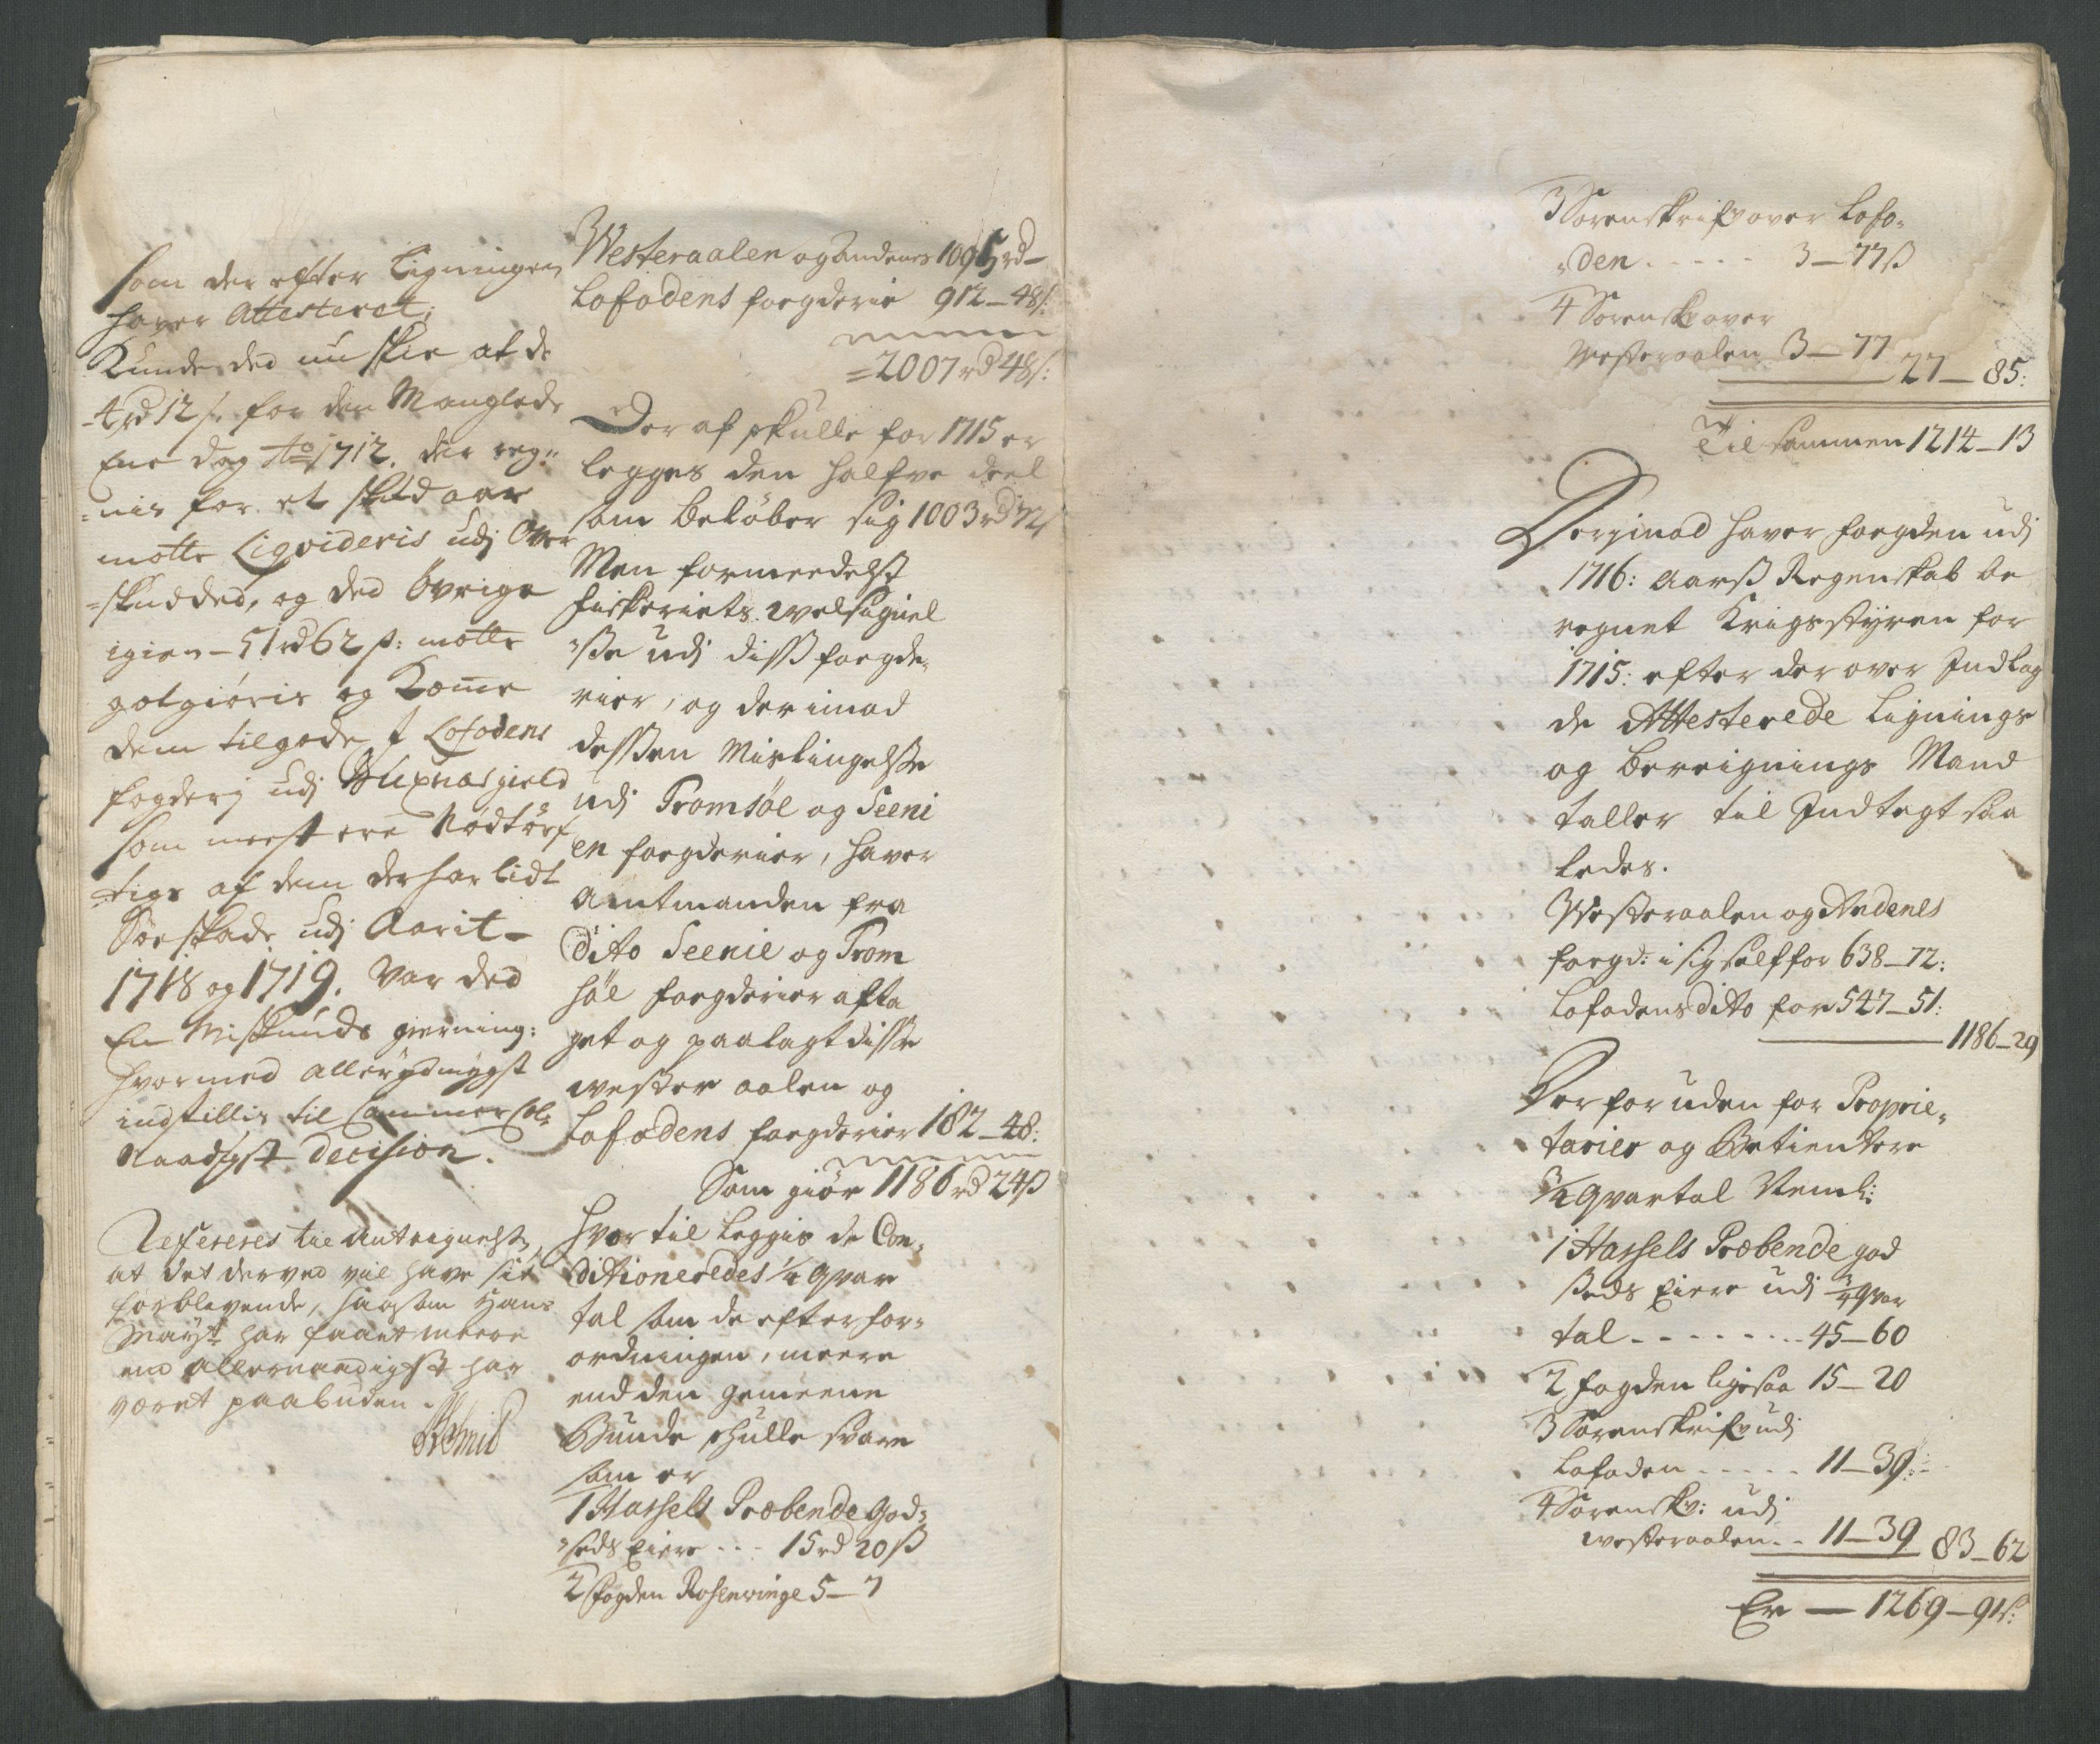 som der efter Ligningen
haver Attesteret;
Kunde ded nu skie at de
4 rd 12 s. for den Manglede
Ene dag Ao 1712. der reg=
=nis for et skudaar
motte Liqvideris udj Over
=skudded, og ded Övrige
igien - 51 rd 62 s: motte
golgiöris og Komme
dem tilgode J Lofodens
fogderj udj Buxnæsgield
som meest ere Nödtörf
=tigs af dem der har lidt
Söeskade udj Aarit-
1718 og 1719. Var ded
En Miskunds gierning:
hvormed allerydmygst
indstillis til Cammer Col:
Naadigst Decision.
Refereres til Antegnelsen,
at det derved vil have sit
forblivende, saasom Hans
Mayt har faaet meere
end allernaadigst har
været paabuden.
Westeraalen og Andenes 1095 rd -
Lofodens foegderie 912 - 48 s:
= 2007 rd 48 s:
Der af skulle for 1715 er
legges den halfve deel
som belöber sig 1003 rd 72 s
Men formeedelst
fiskeriets welsignel
=sse udj diss foegde,
rier, og derimod
dessen Mislingelsse
udj Tromsöe og Seeni
en foegderier, haver
Amtmanden fra
Dito Seenie og Trom
söe foegderier afta
get og paalagt disse
wester aalen og
Lofodens foegderier 182 - 48:
Som giör 1186 rd 24 s
hvor til leggis de Con,
ditioneredes 1/4 qvar
tal som de efter for=
ordningen, meere
end den gemeene
Bunde skulle svare
som er
1 Hassels Præbende God=
=sets Eiere - - - 15 rd 20 s
2 Fogden Rosenvinge 5 - 7
3 Sorenskrifv over Lofo=
=den - - - - - 3 - 77 s
4 Sorenskr over
Westeraalen 3 - 77
27 - 85:
Til sammen 1214 - 13
Derjmod haver foegden udj
1716: Aarss Regenskab be
regnet Krigsstyren for
1715: efter der over Indlag
de Attesterede Lignings
og bereignings Mand
taller til Indtegt saa
ledes.
Westeraalen og Andenes
foegd: i sig self for 638 - 72:
Lofodens dito for 547 - 51:
1186 - 29
Der foruden for Proprie,
tarier og Betientere
3/4 qvartal Neml:
1 Hassels Præbende god
seds Eiere udj 3/4 qvar
tal - - - - - - - 45 - 60
2 fogden ligesaa 15 - 20
3 Sorenskrifv udj
Lofoden - - - - - 11 - 39
4 Sorenskr: udj
westeraalen - - 11 - 39
83 - 62
Er — 1269 - 91 s: